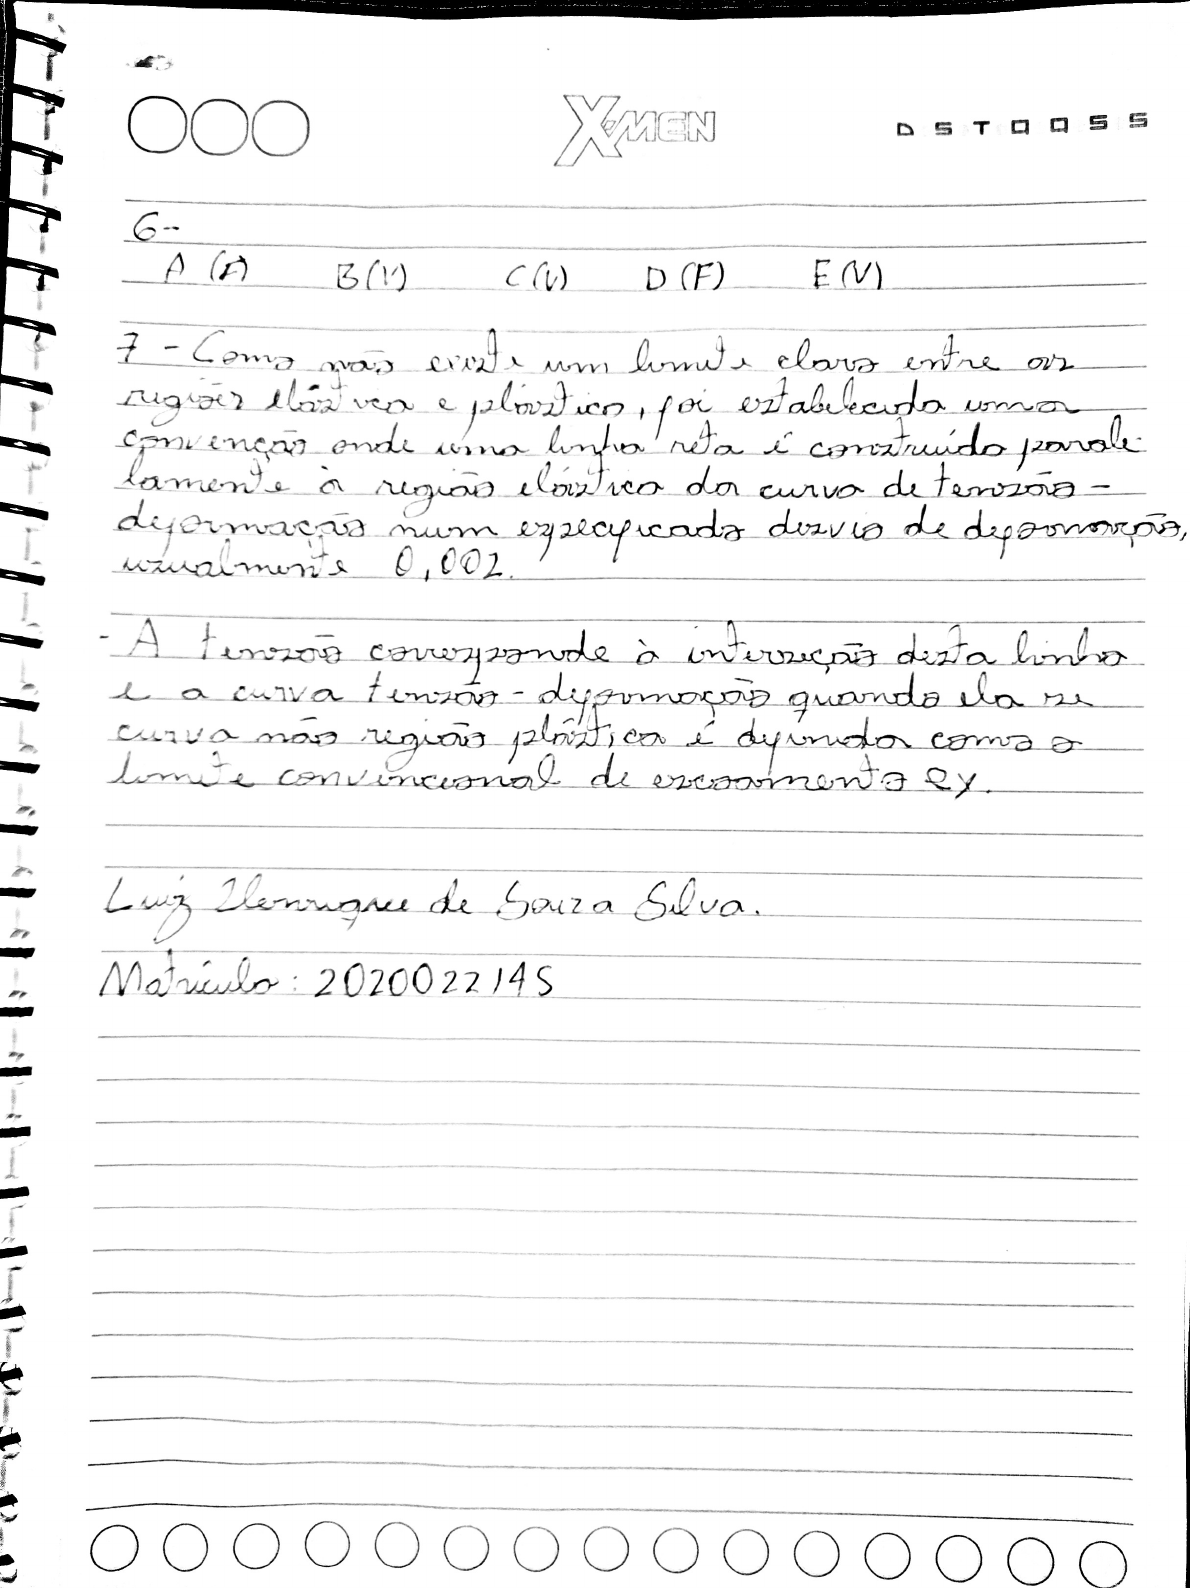 X-MEN
D S T Q Q S S
6-
A (F) B (V) C (V) D (F) E (V)
7 - Como não existe um limite claro entre as
regiões elástica e plástica, foi estabelecida uma
convenção onde uma linha reta é construída parale-
lamente à região elástica da curva de tensão -
deformação num especificado desvio de deformação,
usualmente 0,002.
- A tensão corresponde à interseção desta linha
e a curva tensão - deformação quando ela se
curva não região plástica é definida como o
limite convencional de escoamento ey.
Luiz Henrique de Souza Silva.
Matrícula: 2020022145